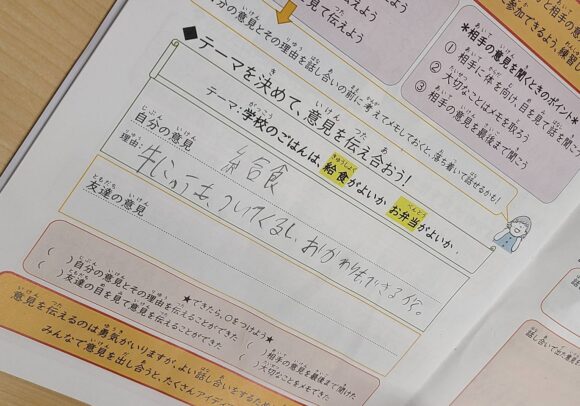 見て伝えよう
分の意見とその理由を話し合いの前に考えてメモしておくと、落ち着いて話せるかも!
参加できるよう、練習し
*相手の意見を聞くときのポイント*
① 相手に体を向け、目を見て話を聞こう
② 大切なことはメモを取ろう
③ 相手の意見を最後まで聞こう
◆テーマを決めて、意見を伝え合おう!
テーマ:学校のごはんは、給食がよいか お弁当がよいか.
自分の意見 給食
理由:
ついてくるし、おかわりもできるから。
友達の意見
★できたら、○をつけよう★
( )自分の意見とその理由を伝えることができた
( )友達の目を見て意見を伝えることができた
( )相手の意見を最後まで聞けた
( )大切なことをメモできた
意見を伝えるのは勇気がいりますが、よい話し合いをするため
みんなで意見を出し合うと、たくさんアイデ
話し合いで出た意見を